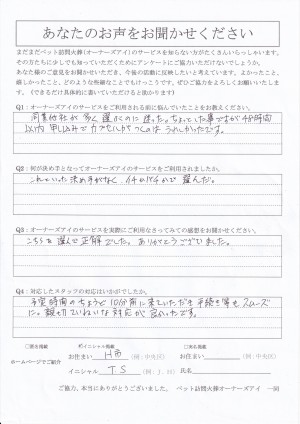 あなたのお声をお聞かせください
まだまだペット訪問火葬(オーナーズアイ)のサービスを知らない方がたくさんいらっしゃいます。
その方たちにも少しでも知っていただくためにアンケートにご協力いただけないでしょうか。
あなた様のご意見をお聞かせいただき、今後の活動に反映したいと考えています。よかったこと、
嬉しかったこと、どのような些細なことでもけっこうです。ぜひご協力をよろしくお願いいたします。
(できるだけ具体的に書いていただけると助かります)
Q1：オーナーズアイのサービスをご利用される前に悩んでいたことをお教えください。
同業他社が多く選ぶのに迷った。
以内
うれしかったです。
Q2：何が決め手となってオーナーズアイのサービスをご利用されましたか。
これといった決め手がなく、イチかバチかで選んだ。
Q3：オーナーズアイのサービスを実際にご利用なさってみての感想をお聞かせください。
こちらを選んで正解でした。ありがとうございました。
Q4：対応したスタッフの対応はいかがでしたか。
予定時間のちょうど10分前に来ていただき手続き等もスムーズ
に。親切ていねいな対応が良かったです。
ホームページでご紹介
□匿名掲載
イニシャル掲載
□実名掲載
お住まい H市 (例：中央区)
お住まい (例：中央区)
イニシャル T S (例：J. H)
氏名
ご協力、本当にありがとうございました。 ペット訪問火葬オーナーズアイ 一同